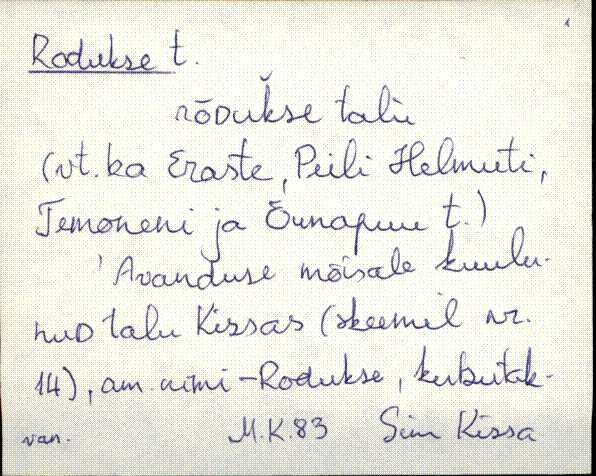 Rodukse t.
rõdukse talu
(vt. ka Eraste, Peili Helmuti,
Temoneni ja Õunapuu t.)
'Avanduse mõisale kuulu-
nud talu Kissas (skeemil nr.
14), am. nimi - Rodukse, kirbutak-
van. M.K.83 Sim Kissa